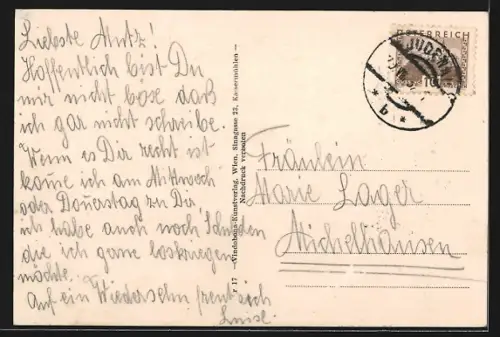 Liebste Mutz!
Hoffentlich bist Du
mir nicht böse daß
ich gar nicht schreibe.
Wenn es Dir recht ist
komme ich am Mittwoch
oder Donerstag zu Dir,
ich habe auch noch Schulden
die ich gerne loskriegen
möchte.
Auf ein Wiedersehn freut sich
Luise.
r 17 — Vindobona-Kunstverlag, Wien, Sinagasse 22, Kaisermühlen —
Nachdruck verboten
ÖSTERREICH
10
JUDENB
* b *
Fräulein
Marie Lager
Aichelhausen